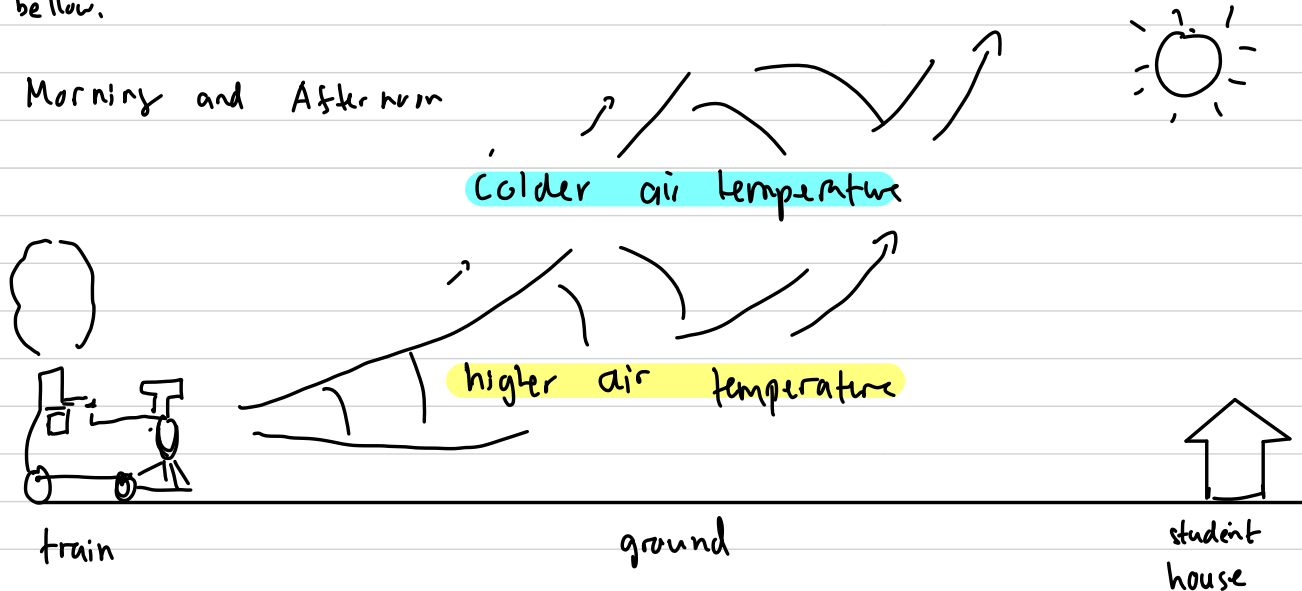 bellow.
Morning and Afternoon
Colder air temperature
higher air temperature
train
ground
student
house